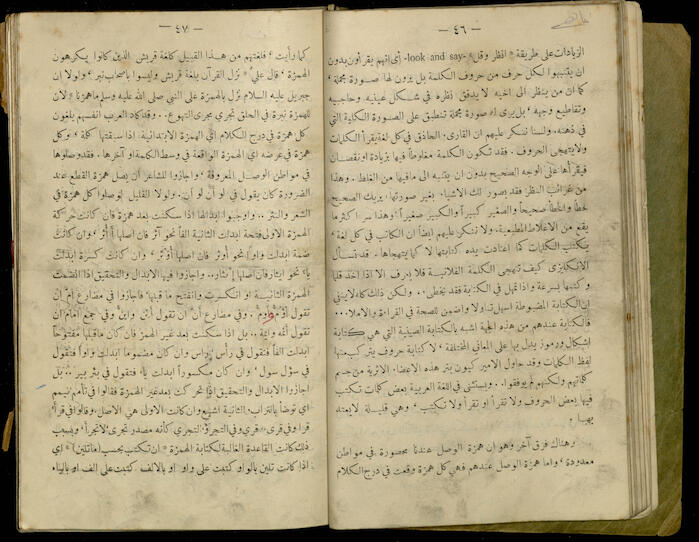 — ٤٦ —
الزيادات على طريقة « انظر وقل » -look and say- أي انهم يقرأون بدون
ان يتنبهوا لكل حرف من حروف الكلمة بل يرون لها صورة مجملة ،
كما ان من ينظر الى اخيه لا يدقق نظره في شكل عينيه وحاجبيه
وتقاطيع وجهه ، بل يرى له صورة مجملة تنطبق على الصورة الكلية التي
في ذهنه . ولسنا ننكر عليهم ان القارىء الحاذق في كل لغة يقرأ الكلمات
ولا يتهجى الحروف . فقد تكون الكلمة مغلوطاً فيها بزيادة او نقصان
فيقرأها على الوجه الصحيح بدون ان يتنبه الى ما فيها من الغلط . وهذا
من غرائب النظر فقد يصور لك الاشياء بغير صورتها ، يريك الصحيح
خطأ والخطأ صحيحاً والصغير كبيراً والكبير صغيراً ، وهذا سر اكثر ما
يقع من الاغلاط المطبعية . ولا ننكر عليهم ايضاً ان الكاتب في كل لغة ،
يكتب الكلمات كما اعتادت يده كتابتها لا كما يتهجاها . فقد تسأل
الانكليزي كيف تهجى الكلمة الفلانية فلا يعرف الا اذا اخذ قلماً
وكتبها بسرعة واذا تمهل في الكتابة فقد يخطىء . ولكن ذلك كله لا ينفي
ان الكتابة المضبوطة اسهل تناولا واضمن للصحة في القراءة والاملاء ...
فالكتابة عندهم من هذه الجهة اشبه بالكتابة الصينية التي هي كتابة
اشكال ورموز يدل بها على المعاني المختلفة ، لا كتابة حروف يتركب منها
لفظ الكلمات وقد حاول الاميركيون بتر هذه الاعضاء الاثرية من جسم
كلماتهم ولكنهم لم يوفقوا . ويستثنى في اللغة العربية بعض كلمات تكتب
فيها بعض الحروف ولا تقرأ او تقرأ ولا تكتب ، وهي قليلة لا يعتد
بها .
وهناك فرق آخر وهو ان همزة الوصل عندنا محصورة في مواطن
معدودة ، واما همزة الوصل عندهم فهي كل همزة وقعت في درج الكلام
— ٤٧ —
كما رأيت ، فلغتهم من هذا القبيل كلغة قريش الذين كانوا يكرهون
الهمزة ، قال علي « نزل القرآن بلغة قريش وليسوا باصحاب نبر ، ولولا ان
جبريل عليه السلام نزل بالهمزة على النبي صلى الله عليه وسلم ما همزنا » لان
للهمزة نبرة في الحلق تجري مجرى التهوع .. وقد كاد العرب انفسهم يلغون
كل همزة في درج الكلام اي الهمزة الابتدائية اذا سبقتها كلمة ، وكل
همزة في عرضه اي الهمزة الواقعة في وسط الكلمة او آخرها . فقد وصلوها
في مواطن الوصل المعروفة ، واجازوا للشاعر ان يصل همزة القطع عند
الضرورة كان يقول في لو أن لو ان . ولولا القليل لوصلوا كل همزة في
الشعر والنثر .. واوجبوا ابدالها اذا سكنت بعد همزة فان كانت حركة
الهمزة الاولى فتحة ابدلت الثانية الفاً نحو آثر فان اصلها أَأْثر ، وان كانت
ضمة ابدلت واواً نحو أوثر فان اصلها أُؤْثر ، وان كانت كسرة ابدلت
ياء نحو ايثار فان اصلها إِئثار .. واجازوا فيها الابدال والتحقيق اذا انضمت
الهمزة الثانية او انكسرت وانفتح ما قبلها ، فاجازوا في مضارع امّ ان
تقول أَؤُمّ وأَوُمّ . وفي مضارع أنّ ان تقول أئن وأين وفي جمع امام ان
تقول أئمة وايمة .. بل اذا سكنت بعد غير الهمز فان كان ما قبلها مفتوحاً
ابدلت الفاً فتقول في رأس راس وان كان مضموماً ابدلت واواً فتقول
في سؤل سول ، وان كان مكسوراً ابدلت ياء فتقول في بئر بير .. بل
اجازوا الابدال والتحقيق اذا تحركت بعد غير الهمز فقالوا في تأمم تيمم
اي توضأ بالتراب ، الثانية اشهر وان كانت الاولى هي الاصل ، وقالوا في قرأ
قرا وفي قرىء قري وفي التجرؤ التجري كأنه مصدر تجرى لا تجرأ ، وبسبب
ذلك كانت القاعدة الغالبة لكتابة الهمزة « ان تكتب بحسب ما تلين » اي
اذا كانت تلين بالواو كتبت على واو او بالالف كتبت على الف او بالياء